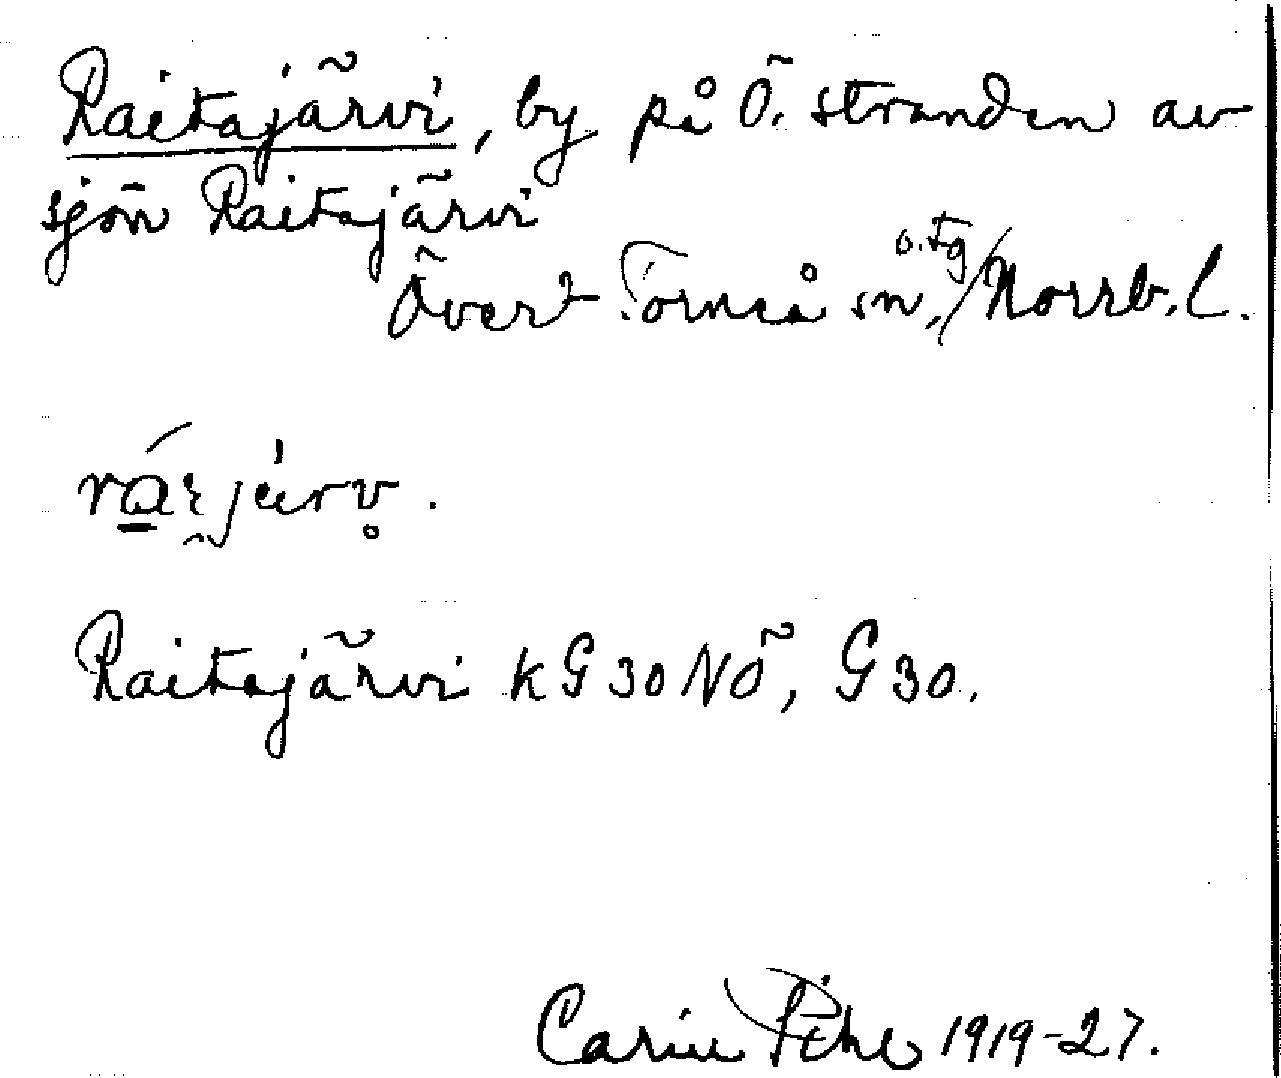 Raitajärvi, by på Ö. stranden av
sjön Raitajärvi
Övert Torneå sn, o. tg / Norrb. l.
Raitajärvi kG30NÖ, G30.
Carin Pihl 1919-27.